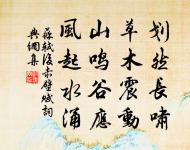 划然長嘯
草木震動
山鳴谷應
風起水涌
蘇軾後赤壁賦詞
典網集